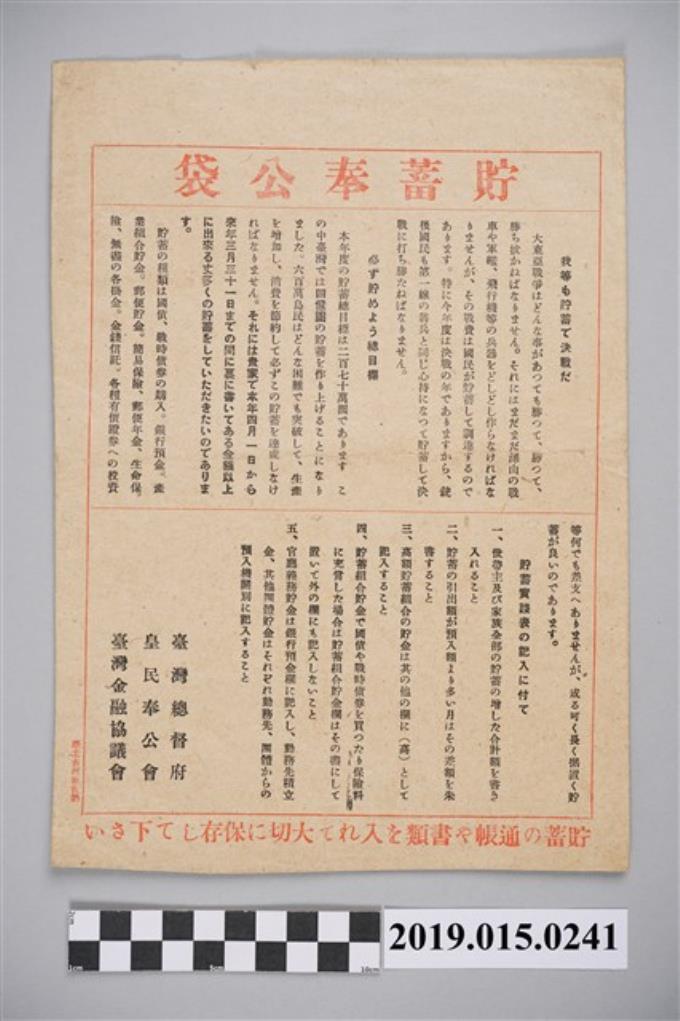 貯蓄奉公袋
我等も貯蓄で決戰だ
大東亞戰爭はどんな事があつても勝つて、勝つて、
勝ち拔かねばなりません。それにはまだまだ澤山の戰
車や軍艦、飛行機等の兵器をどしどし作らなければな
りませんが、その戰費は國民が貯蓄して調達するので
あります。特に今年度は決戰の年でありますから、銃
後國民も第一線の將兵と同じ心持になつて貯蓄して決
戰に打ち勝たねばなりません。
必ず貯めよう總目標
本年度の貯蓄總目標は二百七十萬圓であります こ
の中臺灣では四億圓の貯蓄を作り上げることになり
ました。六百萬島民はどんな困難でも突破して、生產
を增加し、消費を節約して必ずこの貯蓄を達成しなけ
ればなりません。それには貴家で本年四月一日から
來年三月三十一日までの間に裏に書いてある金額以上
に出來る丈多くの貯蓄をしていただきたいのでありま
す。
貯蓄の種類は國債、戰時債券の購入。銀行預金。產
業組合貯金。郵便貯金。簡易保險、郵便年金、生命保
險、無盡の各掛金。金錢信託。各種有價證券への投資
等何でも差支へありませんが、成る可く長く据置く貯
蓄が良いのであります。
貯蓄實踐表の記入に付て
一、世帶主及び家族全部の貯蓄の增した合計額を書き
入れること
二、貯蓄の引出額が預入額より多い月はその差額を朱
書すること
三、高額貯蓄組合の貯金は其の他の欄に(高)として
記入すること
四、貯蓄組合貯金で國債や戰時債券を買つたり保險料
に充當した場合は貯蓄組合貯金欄はその書にして
置いて外の欄にも記入しないこと
五、官廳義務貯金は銀行預金欄に記入し、勤務先積立
金、其他團體貯金はそれぞれ勤務先、團體からの
預入機關別に記入すること
臺灣總督府
皇民奉公會
臺灣金融協議會
貯蓄の通帳や書類を入れて大切に保存して下さい
1cm 5cm 10cm
2019.015.0241